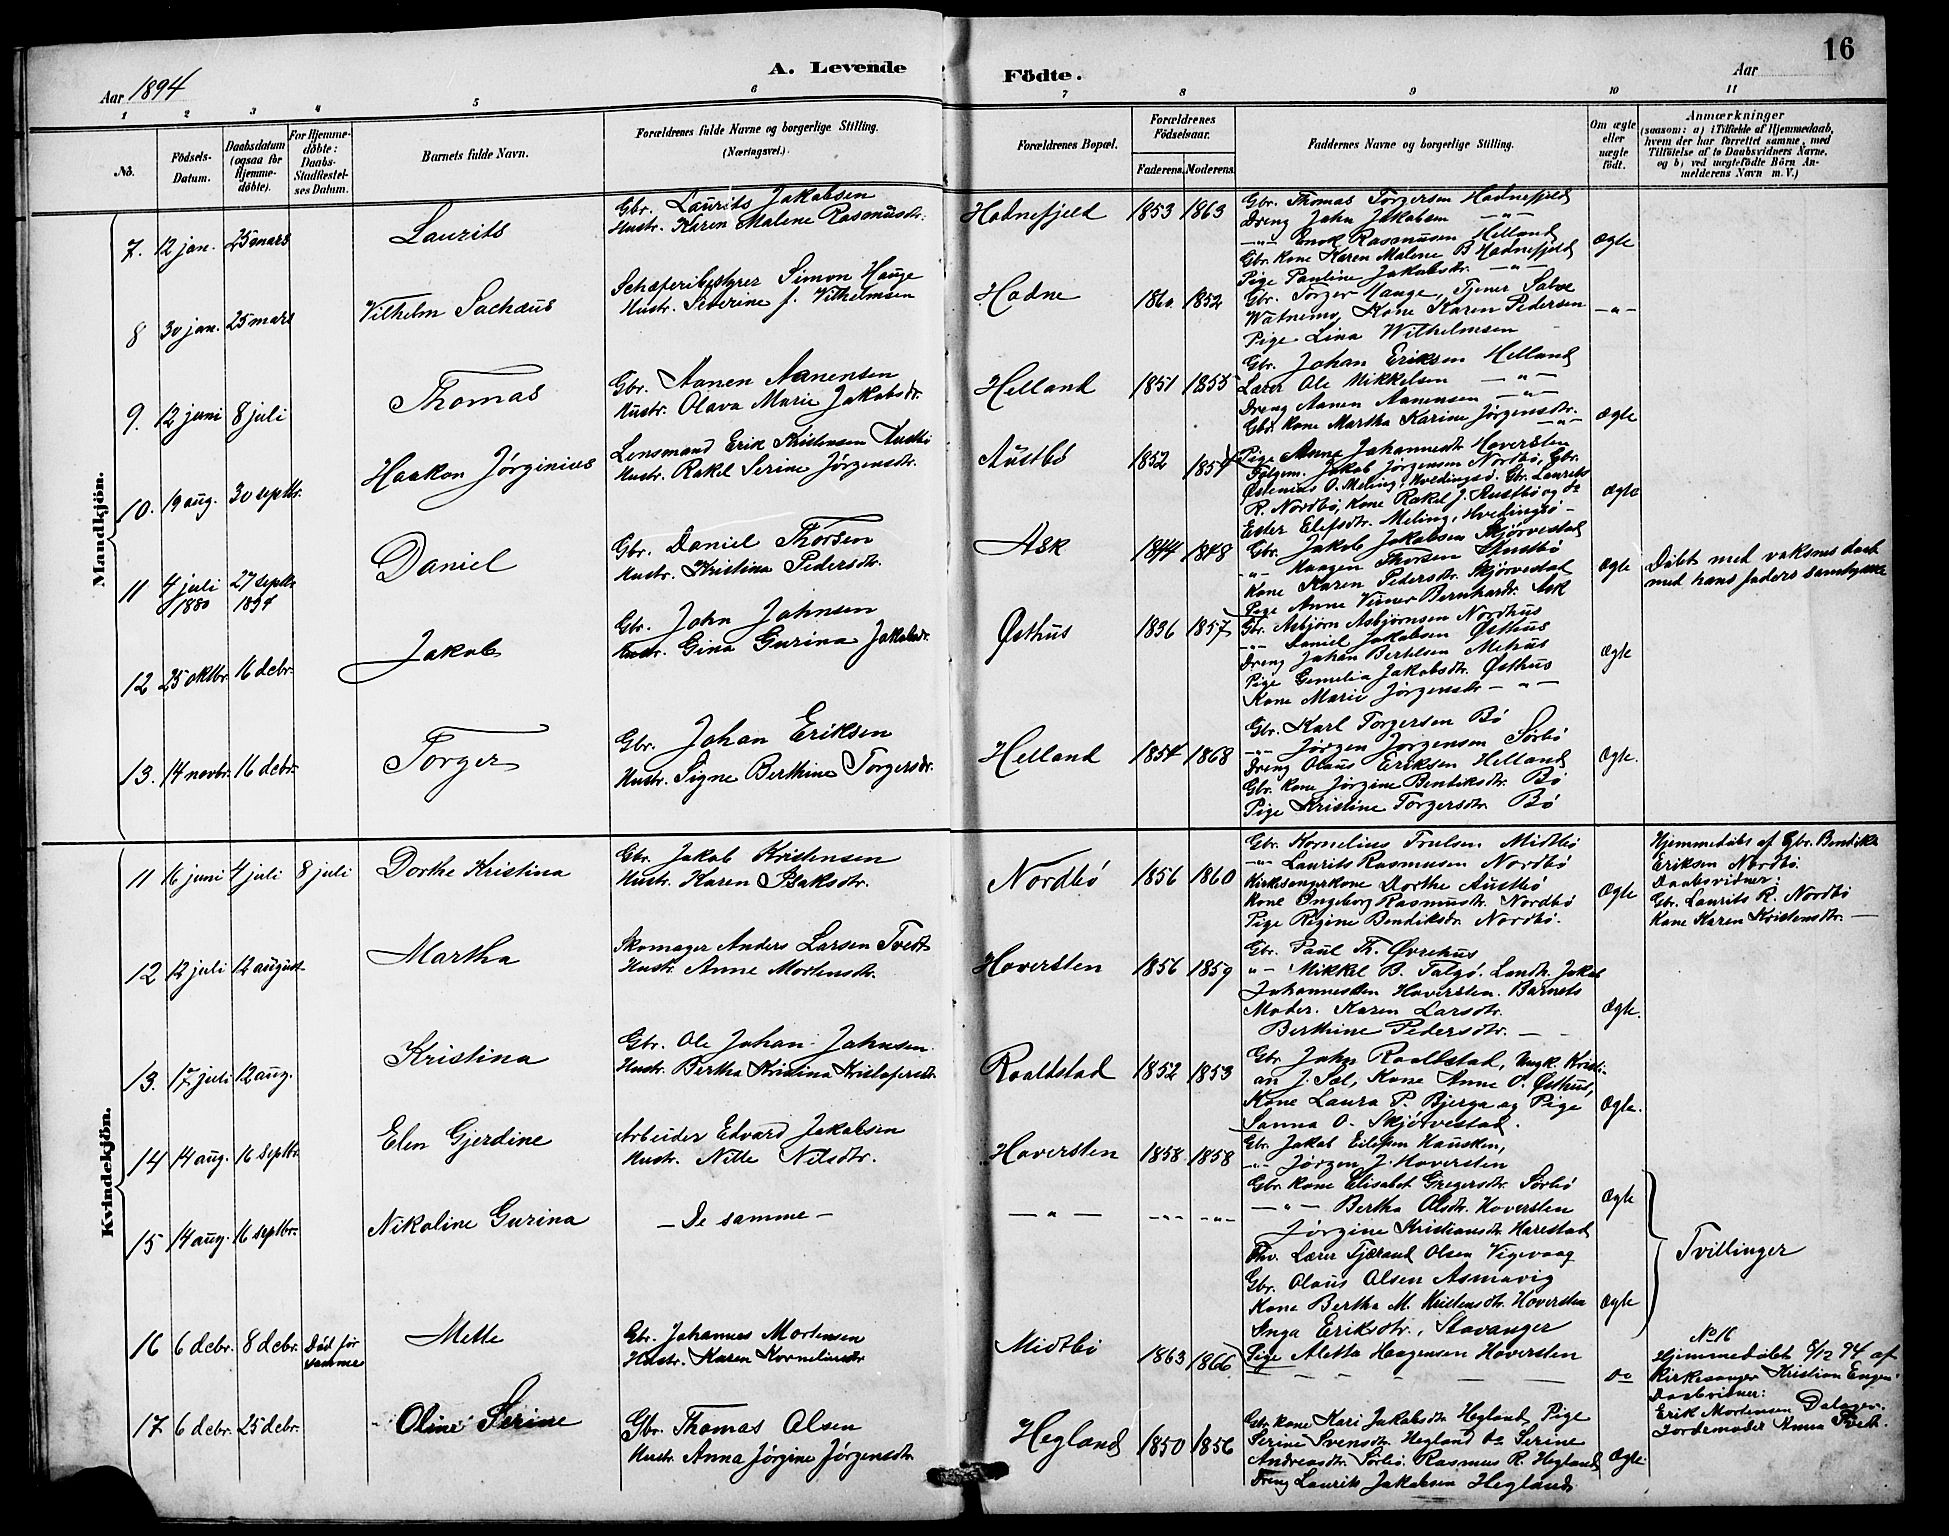 Aar 1894
A. Levende Födte.
Aar
16
1 2 3 4 5 6 7 8 9 10 11
No.
Födsels-Datum.
Daabsdatum (ogsaa for Hjemme-döbte).
For Hjemme-döbte: Daabs-Stadfæstel-ses Datum.
Barnets fulde Navn.
Forældrenes fulde Navne og borgerlige Stilling. (Næringsvei.)
Forældrenes Bopæl.
Forældrenes Födselsaar.
Faderens. Moderens.
Faddernes Navne og borgerlige Stilling.
Om ægte eller uægte født.
Anmærkninger
(saasom: a) i Tilfælde af Hjemmedaab, hvem der har forrettet samme, med Tilföielse af to Daabsvidners Navne, og b) ved uægtefödte Börn An-melderens Navn m. V.)
Mandkjön.
7. 12 jan. 25 mars
Laurits
Gbr. Laurits Jakobsen
Hustr. Karen Malene Rasmusdr.
Hodnefjeld
1853 1863
Gbr. Thomas Torgersen Hodnefjeld
Dreng John Jakobsen —"—
—"— Enok Rasmusen Helland
Gbr. kone Karen Malene B Hodnefjeld
Pige Pauline Jakobsdr. —"—
Ægte
8 30 jan. 25 mars
Vilhelm Sachæus
Schæferibestyrer Simon Hauge
Hustr. Severine f. Vilhelmsen
Hodne
1860 1852
Gbr. Torger Hauge, Tjener Salve
Watnemo, Kone Karen Pedersen
Pige Lina Wilhelmsen
—"—
9. 12 juni 8 juli
Thomas
Gbr. Aanen Aanensen
Hustr. Olava Marie Jakobsdr.
Helland
1851 1855
Gbr. Johan Eriksen Helland
Lærer Ole Mikkelsen —"—
Dreng Aanen Aanensen —"—
Gbr. kone Martha Karine Jørgensdtr. —"—
Pige Anne Johannesdr. Hoversten
Ægte
10. 19 aug. 30 septbr.
Haakon Jørginius
Lensmand Erik Kristensen Austbø
Hustr. Rakel Serine Jørgensdtr.
Austbø
1852 1854
Følgem. Jakob Jørgensen Nordbø, Gbr.
Østenius O. Meling, Hvedingsø. Gbr. Laurits
R. Nordbø, Kone Rakel J. Austbø og do
Ester Elefsdtr. Meling, Hvedingsø—
Ægte
11 4 juli 1880 27 septbr. 1894
Daniel
Gbr. Daniel Thorsen
Hustr. Kristina Pedersdtr.
Ask
1844 1848
Gbr. Jakob Jakobsen Skjørvestad
—"— Haagen Thorsen Austbø
Kone Karen Pedersdtr. Skjørvestad
Pige Anne Bernhardr. Ask
Ægte
Døbt med voksnes daab
med hans faders samtykke
12 25 oktbr. 16 debr.
Jakob
Gbr. John Johnsen
Hustr. Gina Gurina Jakobsdr.
Østhus
1836 1857
Gbr. Asbjørn Asbjørnsen Nordhus
—"— Daniel Jakobsen Østhus
Dreng Johan Bertelsen Mehus
Pige Gemelia Jakobsdtr. Østhus
Kone Marie Jørgensdtr —"—
Ægte
13. 14 novbr. 16 debr.
Torger
Gbr. Johan Eriksen
Hustr. Signe Berthine Torgersdr.
Helland
1854 1868
Gbr. Karl Torgersen Bø
—"— Jørgen Jørgensen Sørbø
Dreng Olaus Eriksen Helland
Gbr. kone Jørgine Bendiksdtr. Bø
Pige Kristine Torgersdtr. Bø
Ægte.
Kvindekjön.
11 16 juni 4 juli 8 juli
Dorthe Kristina
Gbr. Jakob Kristensen
Hustr. Karen Isaksdtr.
Nordbø
1856 1860
Gbr. Kornelius Trulsen Midtbø
—"— Laurits Rasmusen Nordbø
Kirkesangerkone Dorthe Austbø
Kone Ingeborg Rasmusdtr. Nordbø
Pige Regine Bendiksdr. Nordbø.
Ægte
Hjemmedøbt af Gbr. Bendik
Eriksen Nordbø.
Daabsvidner:
Gbr. Laurits R. Nordbø
Kone Karen Kristensdtr. —
12 12 juli 12 august
Martha
Skomager Anders Larsen Tvedt
Hustr. Anne Mortensdtr.
Hoversten
1856 1859
Gbr. Paul Th. Øvrehus
—"— Mikkel B. Talgø. Landh. Jakob
Johannessen Hoversten. Barnets
Moder. Karen Larsdtr.
Berthine Pedersdtr. —
Ægte.
13. 17 juli 12 aug.
Kristina
Gbr. Ole Johan Johnsen
Hustr. Bertha Kristina Kristofersdr.
Roaldstad
1852 1853
Gbr. John Roaldstad, Ungk. Kristi-
an J. Sel, Kone Anne O. Østhus,
Kone Laura P. Bjerga og Pige
Sanna O. Skjørvestad.
Ægte.
14 14 aug. 16 septbr.
Elen Gjerdine
Arbeider Edvard Jakobsen
Hustr. Nille Nilsdtr.
Hoversten
1858 1858
Gbr. Jakob Eilefsen Hausken,
—"— Jørgen J. Hoversten
Gbr. kone Elisabet Gregersdtr. Sørbø
—"— Bertha Olsdtr. Hoversten
Jørgine Kristiansdtr Harestad
Ægte
15 14 aug. 16 septbr.
Nikoline Gurina
— De samme —
—"— —"— —"—
Fhv. Lærer Tjærand Olsen Vigevaag
Gbr. Olaus Olsen Asmarvig
Kone Bertha M. Kristensdtr. Hoversten
Inga Eriksdtr., Stavanger
Pige Aletta Haagensen Hoversten
Ægte
Tvillinger
16 6 debr. 8 debr. Død før samme
Mette
Gbr. Johannes Mortensen
Hustr. Karen Korneliusdr
Midtbø
1863 1866
— — — — — —
do
No 16
Hjemmedøbt 8/12 94 af
Kirkesanger Kristian Engen.
Daabsvidner:
Erik Mortensen Dalagen
Jordemoder Anna Tvedt.
17 6 debr. 25 debr.
Oline Serine
Gbr. Thomas Olsen
Hustr. Anna Jørgine Jørgensdtr
Hegland
1850 1856
Gbr. kone Kari Jakobsdtr Hegland, Pige
Serine Svensdtr Hegland do Serine
Andreasdtr. Sørbø. Rasmus R. Hegland
Dreng Laurits Jakobsen Hegland.
Ægte.